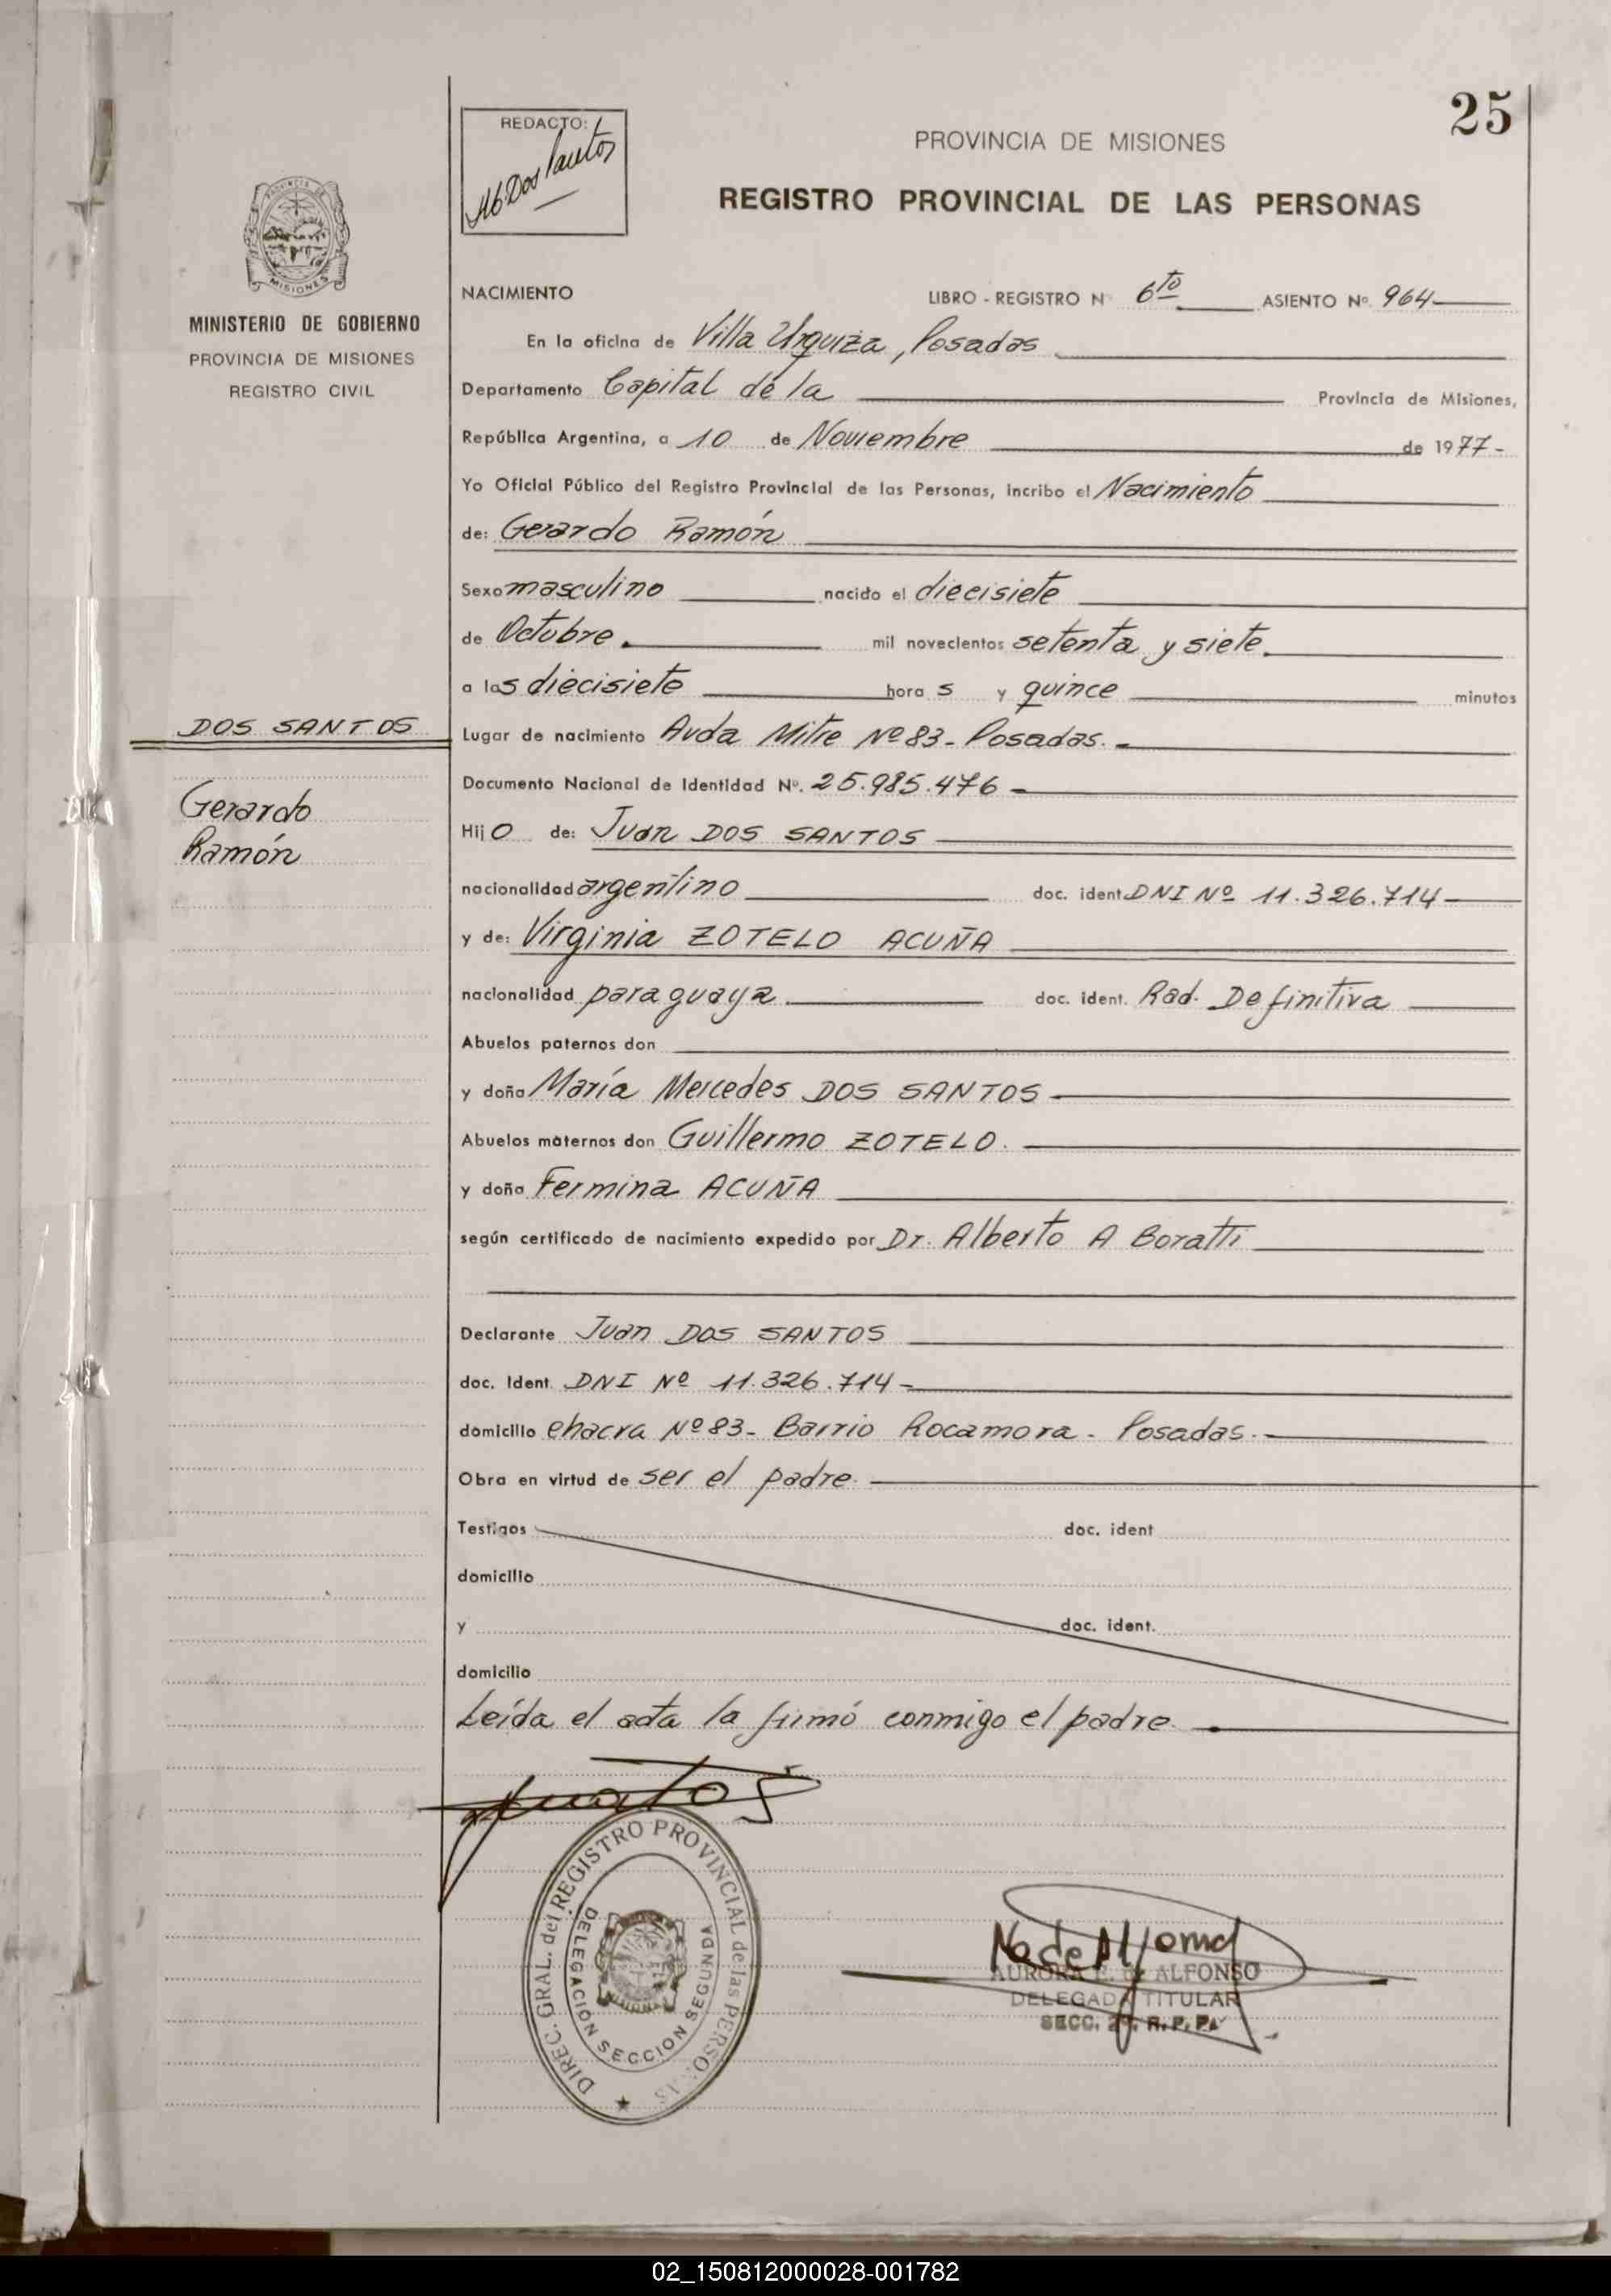 25
REDACTO:
Dos Santos
PROVINCIA DE MISIONES
REGISTRO PROVINCIAL DE LAS PERSONAS
MISIONES
MINISTERIO DE GOBIERNO
PROVINCIA DE MISIONES
REGISTRO CIVIL
NACIMIENTO LIBRO - REGISTRO Nº 6to ASIENTO Nº. 964
En la oficina de Villa Urquiza, Posadas
Departamento Capital de la Provincia de Misiones,
República Argentina, a 10 de Noviembre de 1977-
Yo Oficial Público del Registro Provincial de las Personas, incribo el Nacimiento
de: Gerardo Ramón
Sexo masculino nacido el diecisiete
de Octubre. mil novecientos setenta y siete.
a las diecisiete horas y quince minutos
DOS SANTOS
Gerardo
Ramón
Lugar de nacimiento Avda Mitre Nº 83- Posadas.-
Documento Nacional de Identidad Nº. 25.985.476-
Hijo de: Juan DOS SANTOS
nacionalidad argentino doc. ident. DNI Nº 11.326.714-
y de: Virginia ZOTELO ACUÑA
nacionalidad paraguaya doc. ident. Rad. Definitiva
Abuelos paternos don
y doña María Mercedes DOS SANTOS
Abuelos maternos don Guillermo ZOTELO.
y doña Fermina ACUÑA
según certificado de nacimiento expedido por Dr. Alberto A Boratti
Declarante Juan DOS SANTOS
doc. Ident. DNI Nº 11.326.714-
domicilio chacra Nº 83- Barrio Rocamora - Posadas.-
Obra en virtud de ser el padre.
Testigos doc. ident
domicilio
y doc. ident.
domicilio
Leída el acta la firmó conmigo el padre.
DIREC. GRAL. del REGISTRO PROVINCIAL de las PERSONAS
DELEGACION SECCION SEGUNDA
MISIONES
AURORA E. de ALFONSO
DELEGADA TITULAR
SECC. 2ª. R. P. P.
02_150812000028-001782